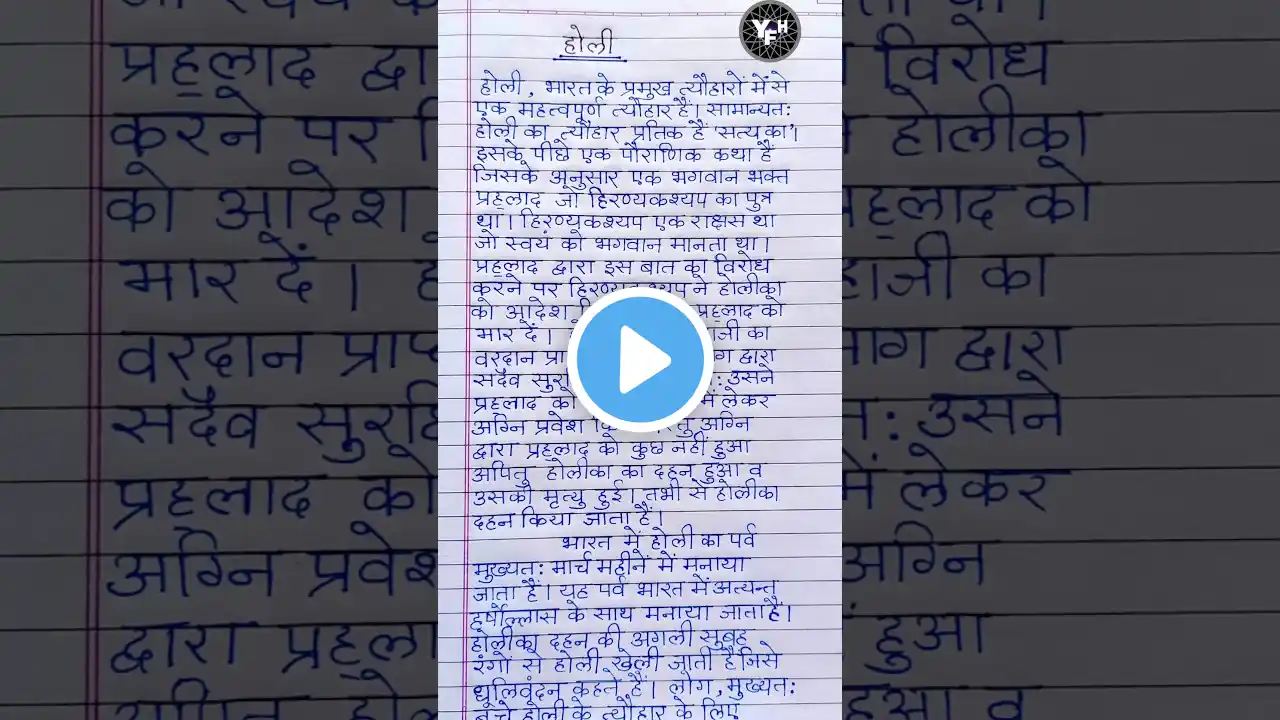 YFH
होली
होली, भारत के प्रमुख त्यौहारों में से
एक महत्वपूर्ण त्यौहार हैं। सामान्यतः
होली का त्यौहार प्रतिक है 'सत्य का'।
इसके पीछे एक पौराणिक कथा हैं
जिसके अनुसार एक भगवान भक्त
प्रह्लाद जो हिरण्यकश्यप का पुत्र
था। हिरण्यकश्यप एक राक्षस था
जो स्वयं को भगवान मानता था।
प्रह्लाद द्वारा इस बात का विरोध
करने पर ने होलीका
को आदेश प्रह्लाद को
मार दें। का
वरदान द्वारा
सदैव उसने
प्रह्लाद को में लेकर
अग्नि प्रवेश अग्नि
द्वारा प्रह्लाद को कुछ नहीं हुआ
अपितु होलीका का दहन हुआ व
उसकी मृत्यु हुई। तभी से होलीका
दहन किया जाता हैं।
भारत में होली का पर्व
मुख्यतः मार्च महीनें में मनाया
जाता हैं। यह पर्व भारत में अत्यन्त
हर्षोल्लास के साथ मनाया जाता हैं।
होलीका दहन की अगली सुबह
रंगो से होली खेली जाती हैं जिसे
धूलिवंदन कहते हैं। लोग, मुख्यतः
बच्चे होली के त्यौहार के लिए